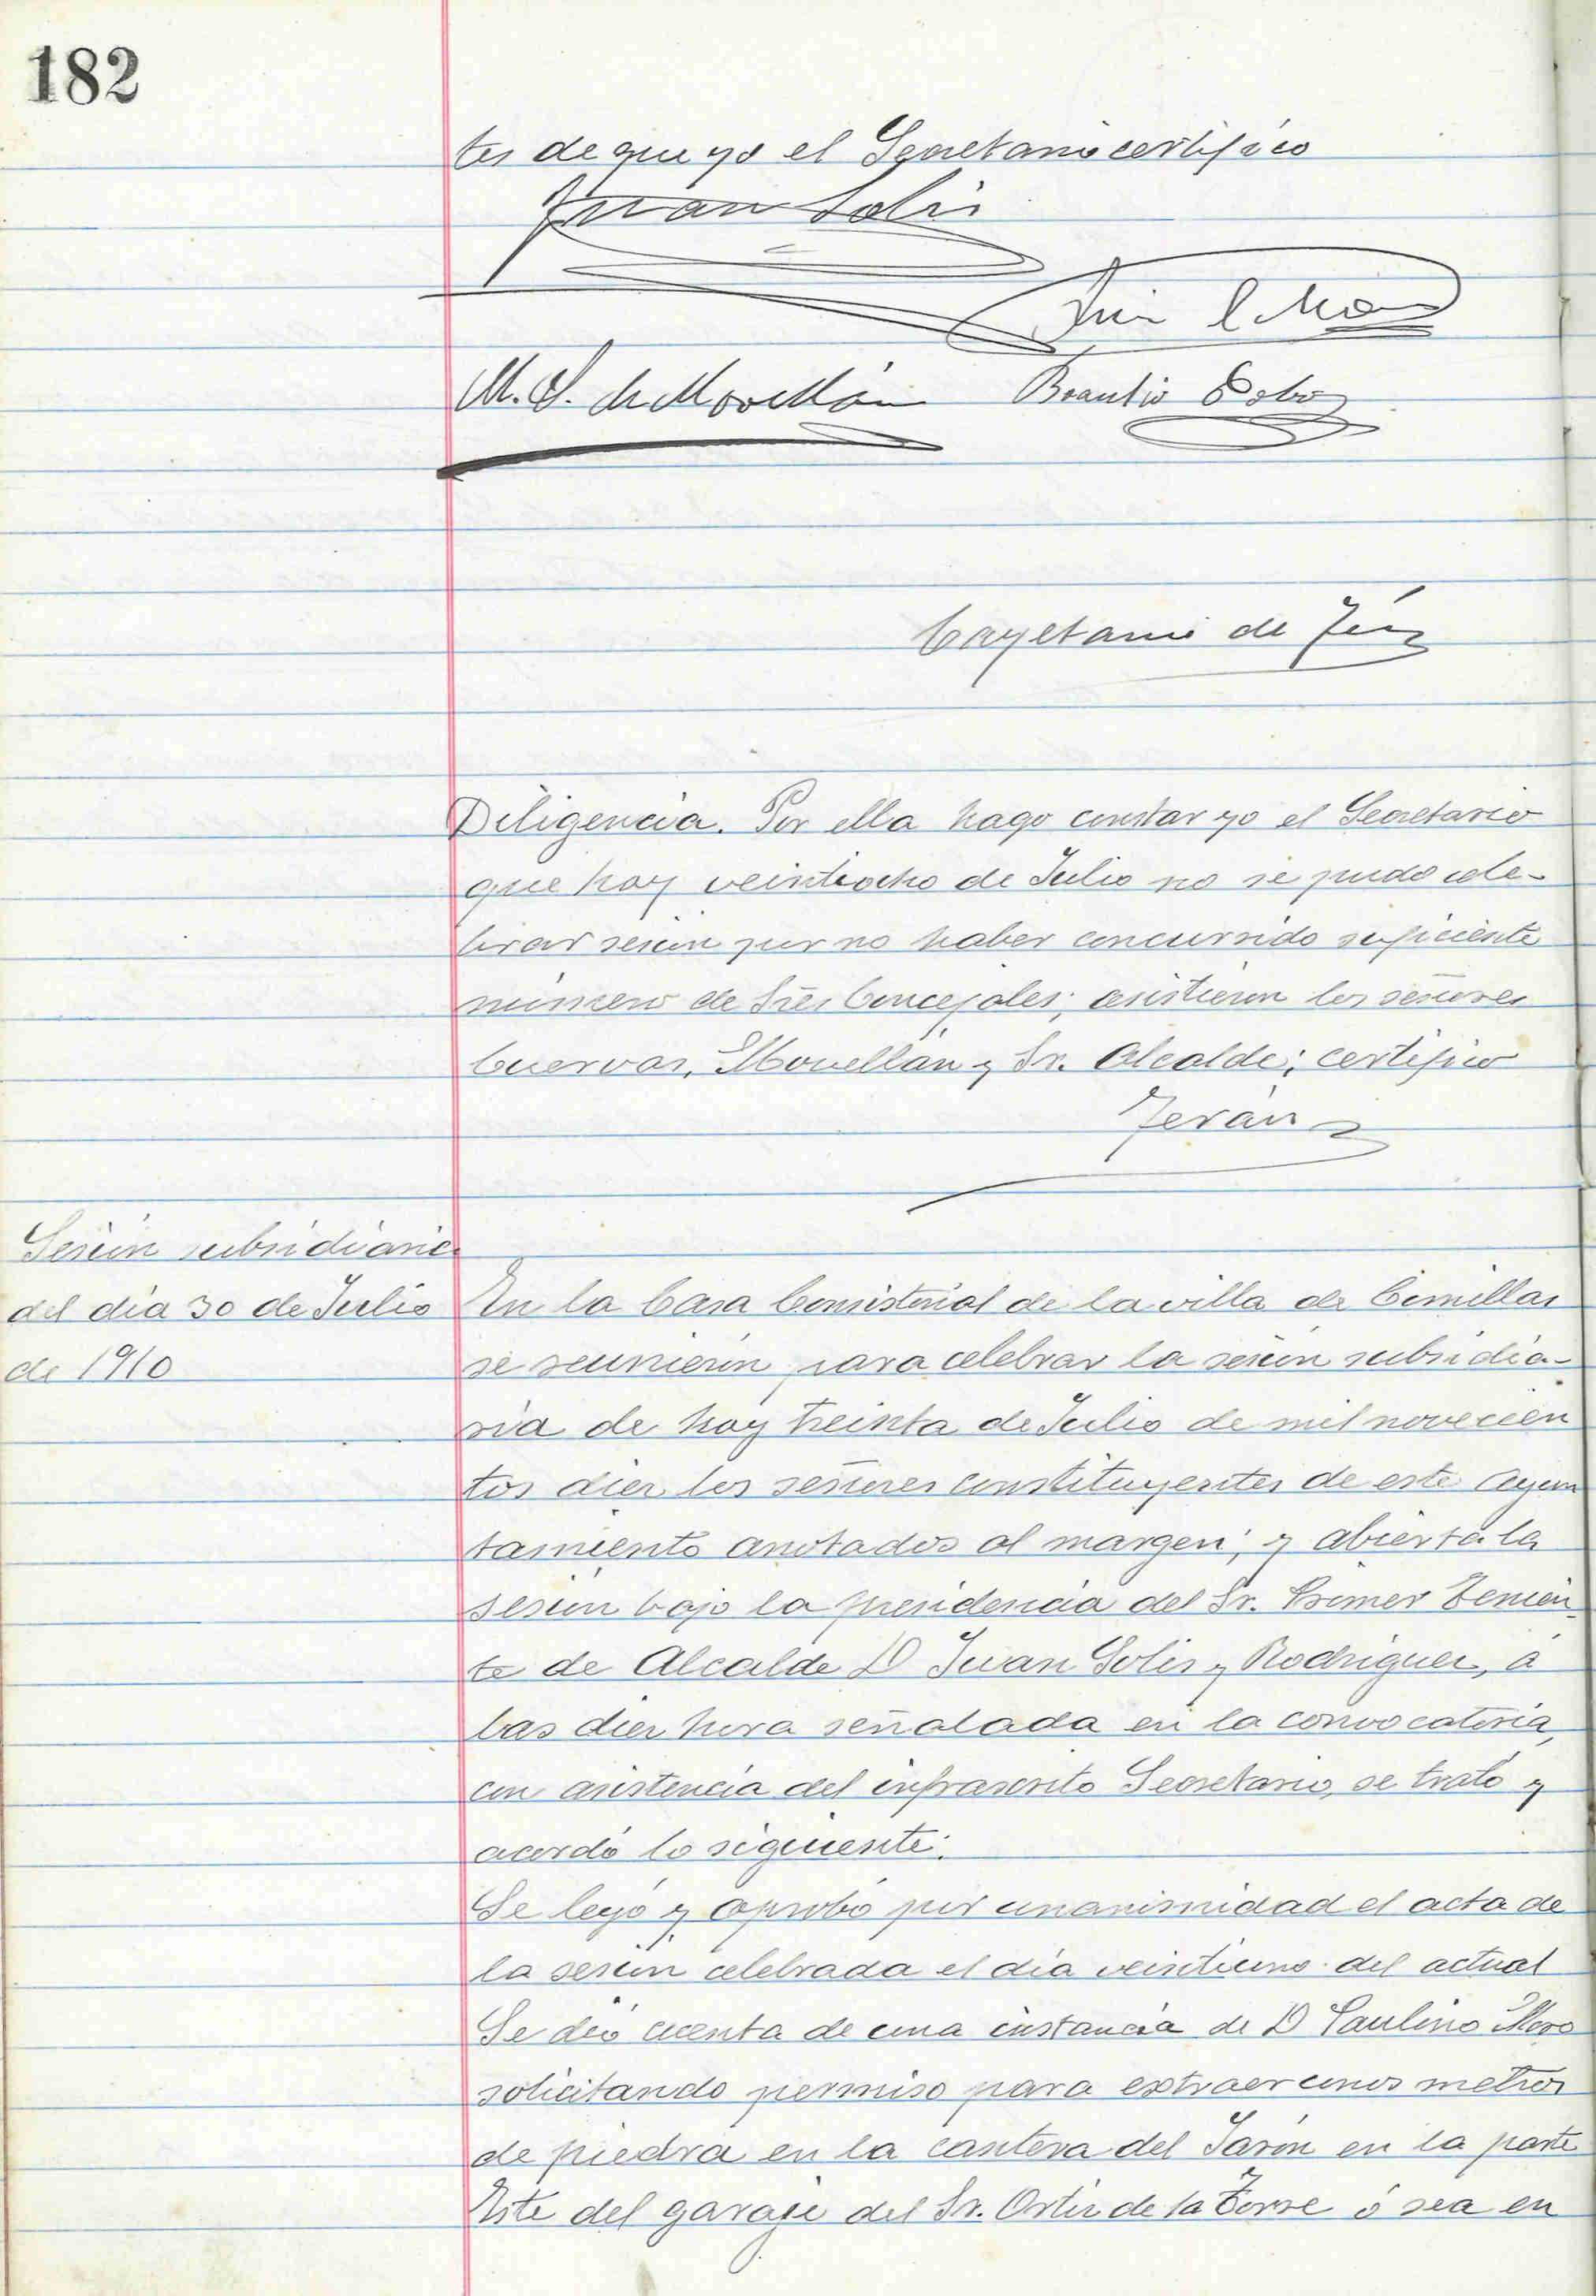 182
tes de que yo el Secretario certifico
Juan Solis
M. S. de Movellán Braulio Cobo
Cayetano de Terán
Diligencia. Por ella hago constar yo el Secretario
que hoy veintiocho de Julio no se pudo cele-
brar sesión por no haber concurrido suficiente
número de Sres Concejales; asistieron los señores
Cuervas, Movellán y Sr. Alcalde; certifico
Terán
Sesión subsidiaria
del día 30 de Julio
de 1910
En la Casa Consistorial de la villa de Comillas
se reunierón para celebrar la sesión subsidia-
ria de hoy treinta de Julio de mil novecien
tos diez los señores constituyentes de este Ayun
tamiento anotados al margen; y abierta la
sesión bajo la presidencia del Sr. Primer Tenien-
te de Alcalde D Juan Solis y Rodriguez, á
las diez hora señalada en la convocatoria,
con asistencia del infrascrito Secretario, se trató y
acordó lo siguiente:
Se leyó y aprobó por unanimidad el acta de
la sesión celebrada el día veintiuno del actual
Se dió cuenta de una instancia de D Paulino Moro
solicitando permiso para extraer unos metros
de piedra en la cantera del Jarón en la parte
Este del garaje del Sr. Ortiz de la Torre ó sea en